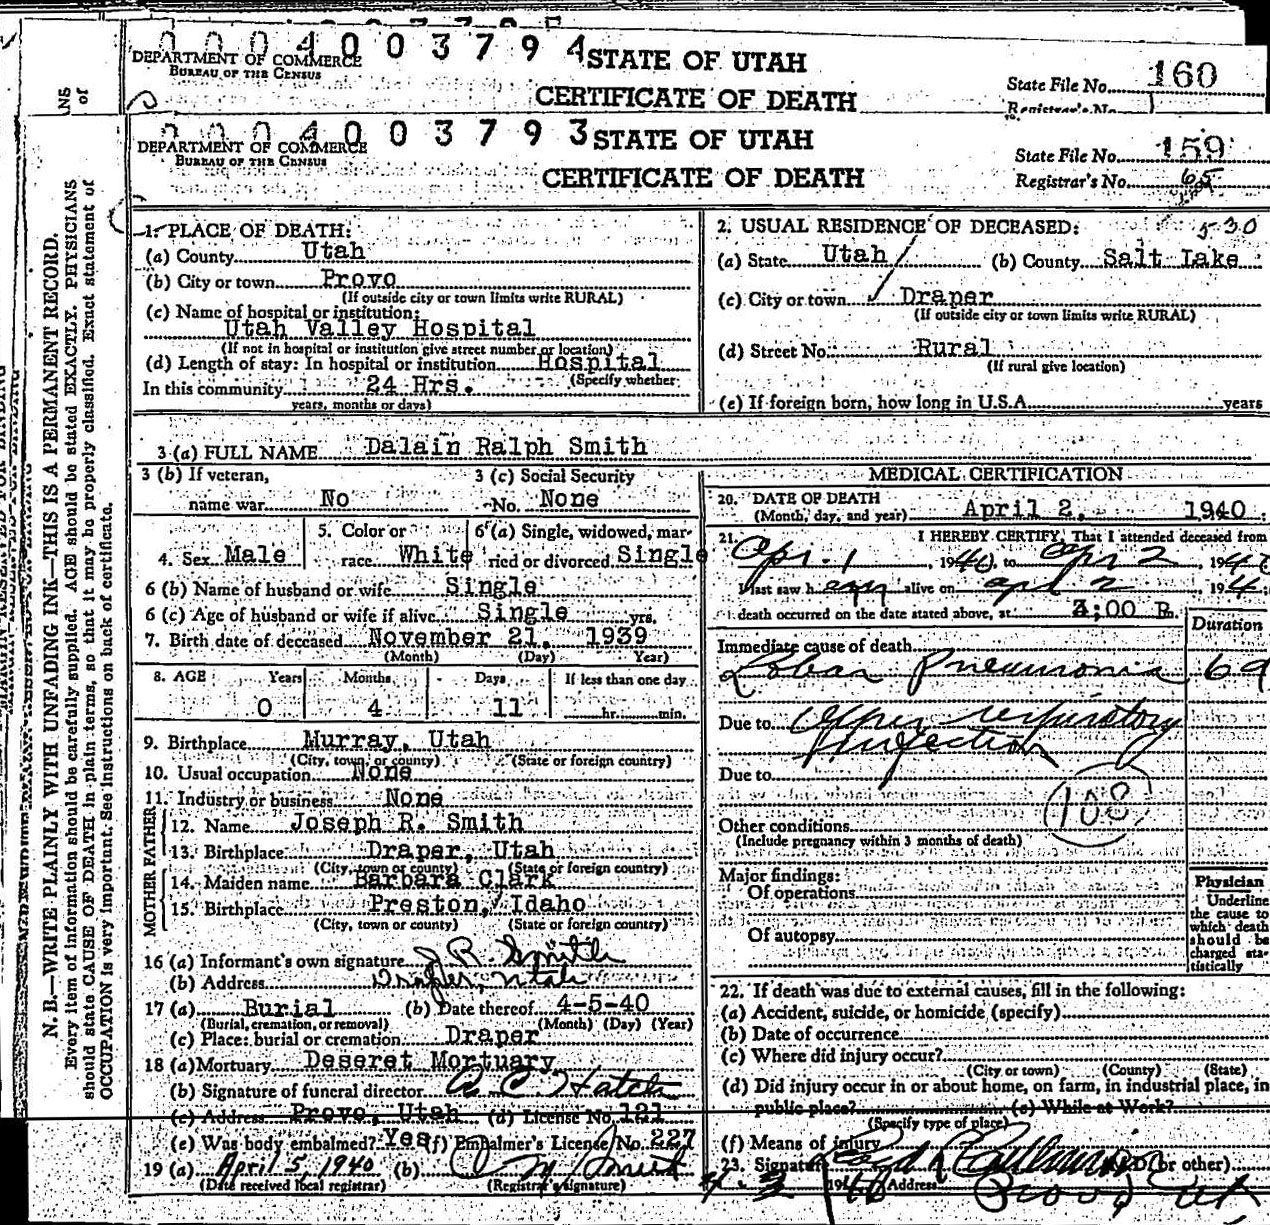 0004003794 STATE OF UTAH
DEPARTMENT OF COMMERCE
BUREAU OF THE CENSUS
CERTIFICATE OF DEATH
State File No. 160
Registrar's No.
0004003793 STATE OF UTAH
DEPARTMENT OF COMMERCE
BUREAU OF THE CENSUS
CERTIFICATE OF DEATH
State File No. 159
Registrar's No. 65
N. B.—WRITE PLAINLY WITH UNFADING INK—THIS IS A PERMANENT RECORD.
Every item of information should be carefully supplied. AGE should be stated EXACTLY. PHYSICIANS
should state CAUSE OF DEATH in plain terms, so that it may be properly classified. Exact statement of
OCCUPATION is very important. See instructions on back of certificate.
1. PLACE OF DEATH:
(a) County Utah
(b) City or town Provo
(If outside city or town limits write RURAL)
(c) Name of hospital or institution:
Utah Valley Hospital
(If not in hospital or institution give street number or location)
(d) Length of stay: In hospital or institution Hospital
(Specify whether
In this community 24 Hrs.
years, months or days)
2. USUAL RESIDENCE OF DECEASED: 530
(a) State Utah (b) County Salt Lake
(c) City or town Draper
(If outside city or town limits write RURAL)
(d) Street No. Rural
(If rural give location)
(e) If foreign born, how long in U.S.A. years
3 (a) FULL NAME Dalain Ralph Smith
3 (b) If veteran, name war No
3 (c) Social Security No. None
4. Sex Male
5. Color or race White
6 (a) Single, widowed, married or divorced Single
6 (b) Name of husband or wife Single
6 (c) Age of husband or wife if alive Single yrs.
7. Birth date of deceased November 21, 1939
(Month) (Day) Year)
8. AGE Years Months Days If less than one day
0 4 11 hr. min.
9. Birthplace Murray, Utah
(City, town, or county) (State or foreign country)
10. Usual occupation None
11. Industry or business None
FATHER
12. Name Joseph R. Smith
13. Birthplace Draper, Utah
(City, town or county) (State or foreign country)
MOTHER
14. Maiden name Barbara Clark
15. Birthplace Preston, Idaho
(City, town or county) (State or foreign country)
16 (a) Informant's own signature J. R. Smith
(b) Address Draper, Utah
17 (a) Burial (b) Date thereof 4-5-40
(Burial, cremation, or removal) (Month) (Day) (Year)
(c) Place: burial or cremation Draper
18 (a) Mortuary Deseret Mortuary
(b) Signature of funeral director
(c) Address Provo, Utah (d) License No. 121
(e) Was body embalmed? Yes (f) Embalmer's License No. 227
19 (a) April 5, 1940 (b)
(Date received local registrar) (Registrar's signature)
MEDICAL CERTIFICATION
20. DATE OF DEATH
(Month, day, and year) April 2, 1940
21. I HEREBY CERTIFY, That I attended deceased from
Apr. 1, 1940, to Apr 2, 1940
I last saw him alive on Apr 2, 194
death occurred on the date stated above, at 3:00 P. m.
Duration
Immediate cause of death
Lobar Pneumonia
Due to upper respiratory
infection
Due to
108
Other conditions
(Include pregnancy within 3 months of death)
Major findings:
Of operations
Of autopsy
Physician
Underline
the cause to
which death
should be
charged sta-
tistically
22. If death was due to external causes, fill in the following:
(a) Accident, suicide, or homicide (specify)
(b) Date of occurrence
(c) Where did injury occur?
(City or town) (County) (State)
(d) Did injury occur in or about home, on farm, in industrial place, in
public place? (e) While at Work?
(Specify type of place)
(f) Means of injury
23. Signature M. D. (or other)
4-3 1940 Address Provo, Ut